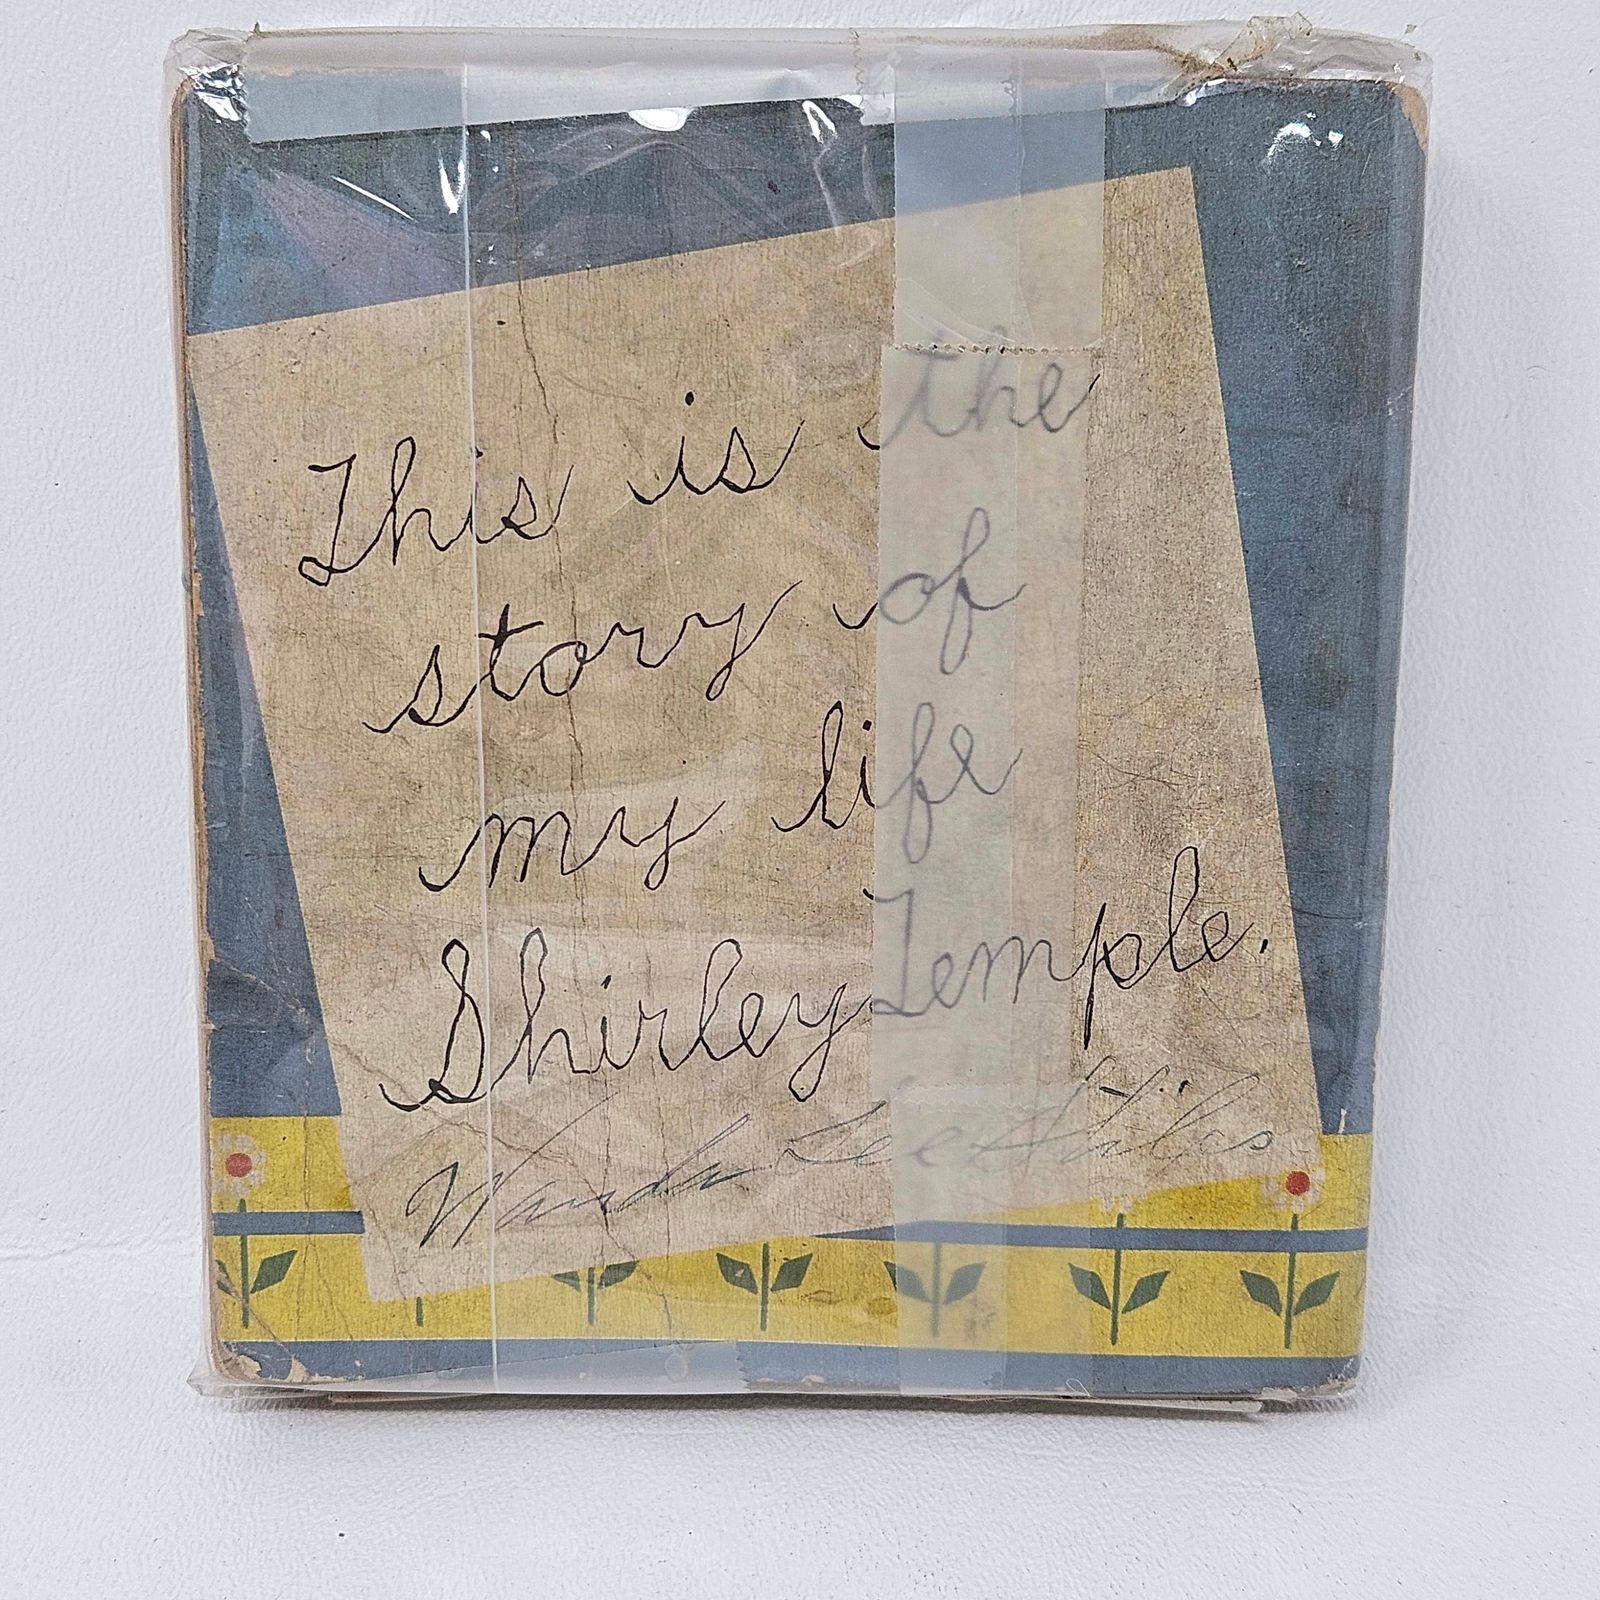 This is the
story of
my life
Shirley Temple.
Wanda Lee